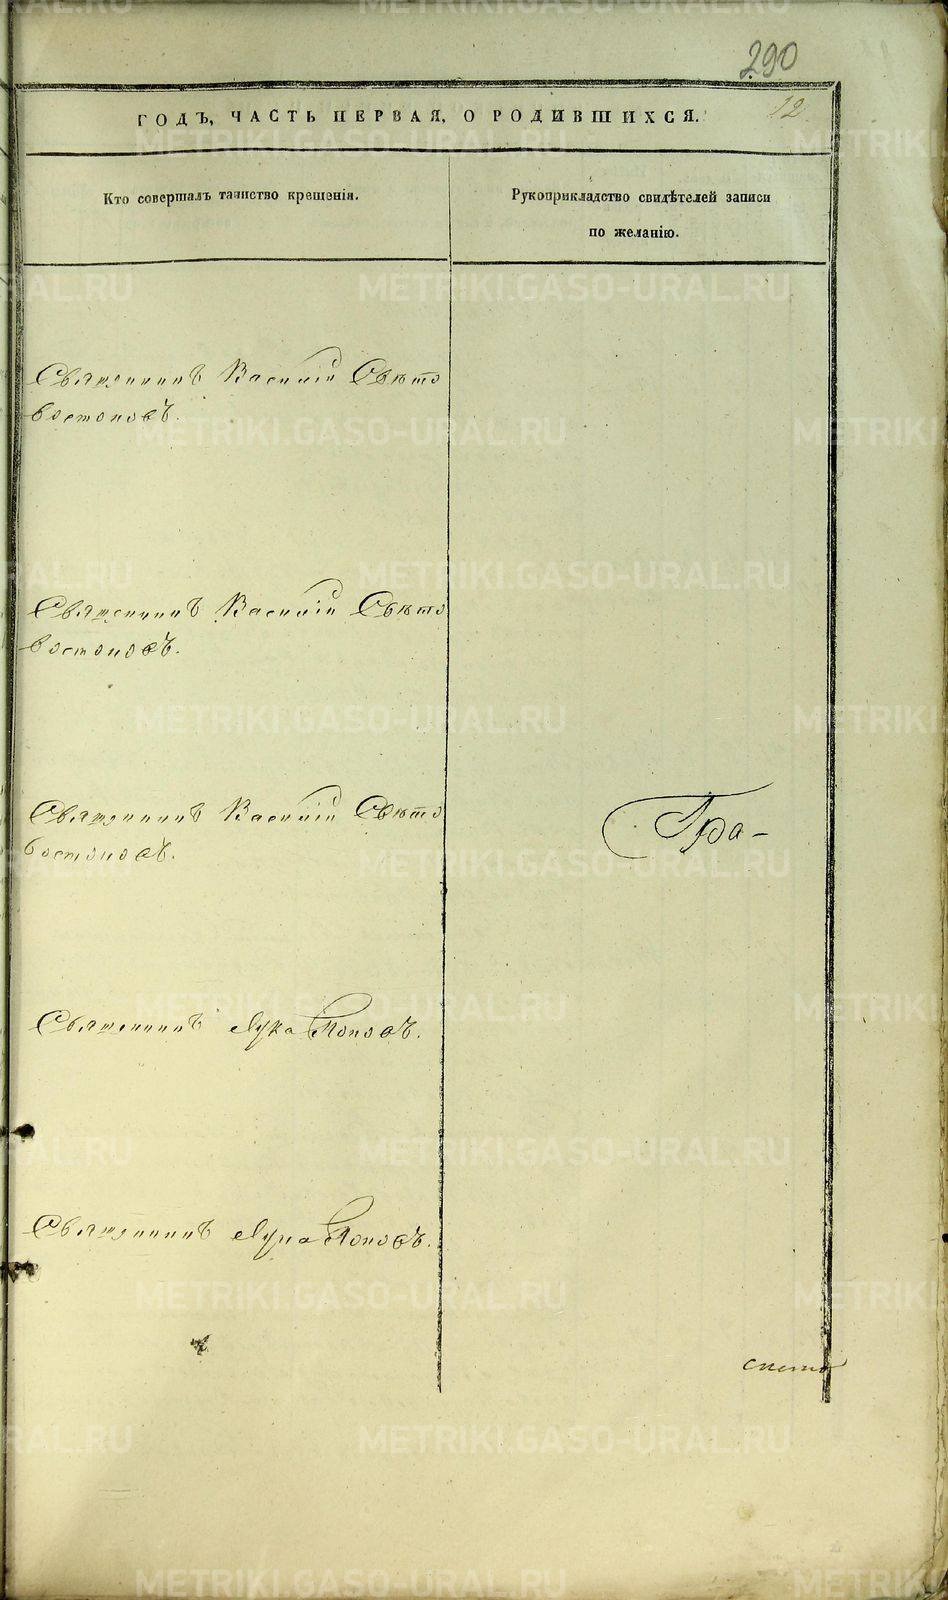 290
12
ГОДЪ, ЧАСТЬ ПЕРВАЯ, О РОДИВШИХСЯ.
Кто совершалъ таинство крещенія.
Рукоприкладство свидѣтелей записи
по желанію.
Священникъ Василій Свѣто
востоковъ.
Священникъ Василій Свѣто
востоковъ.
Священникъ Василій Свѣто
востоковъ.
Гра-
Священникъ Лука Поповъ.
Священникъ Лука Поповъ.
METRIKI.GASO-URAL.RU